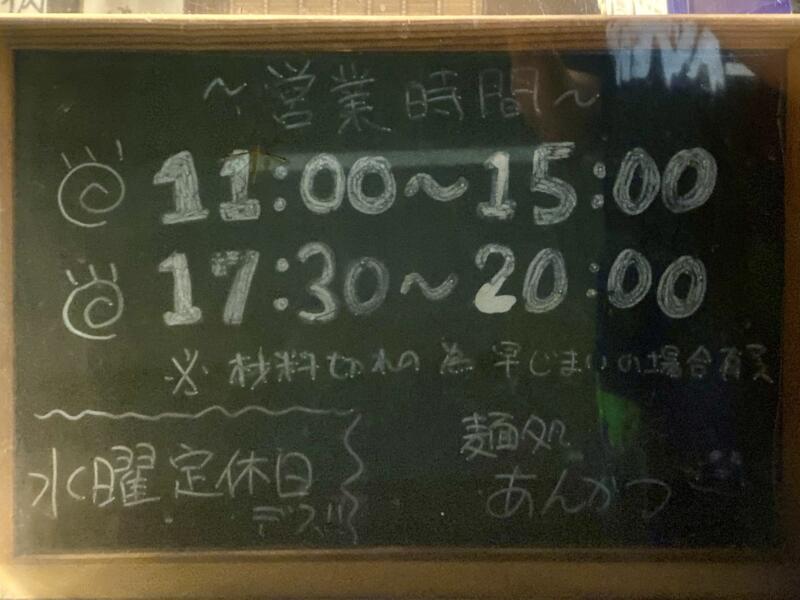 ～営業時間～
11:00～15:00
17:30～20:00
※材料切れの為 早じまいの場合有り
水曜定休日
デス!!
麺処
あんかつ